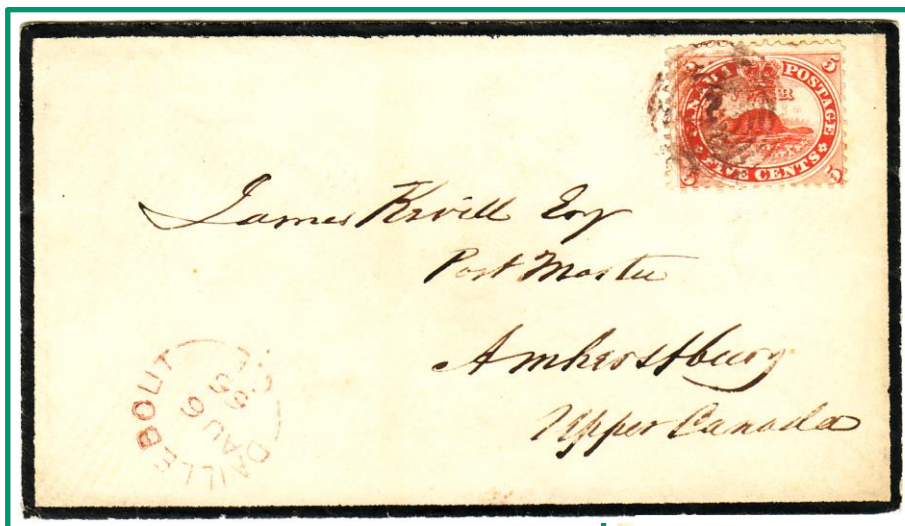 CANADA POSTAGE
5 5
FIVE CENTS
5 5
James Kevill Esq
Post Master
Amherstburg
Upper Canada
DAILLEBOUT
AU 6